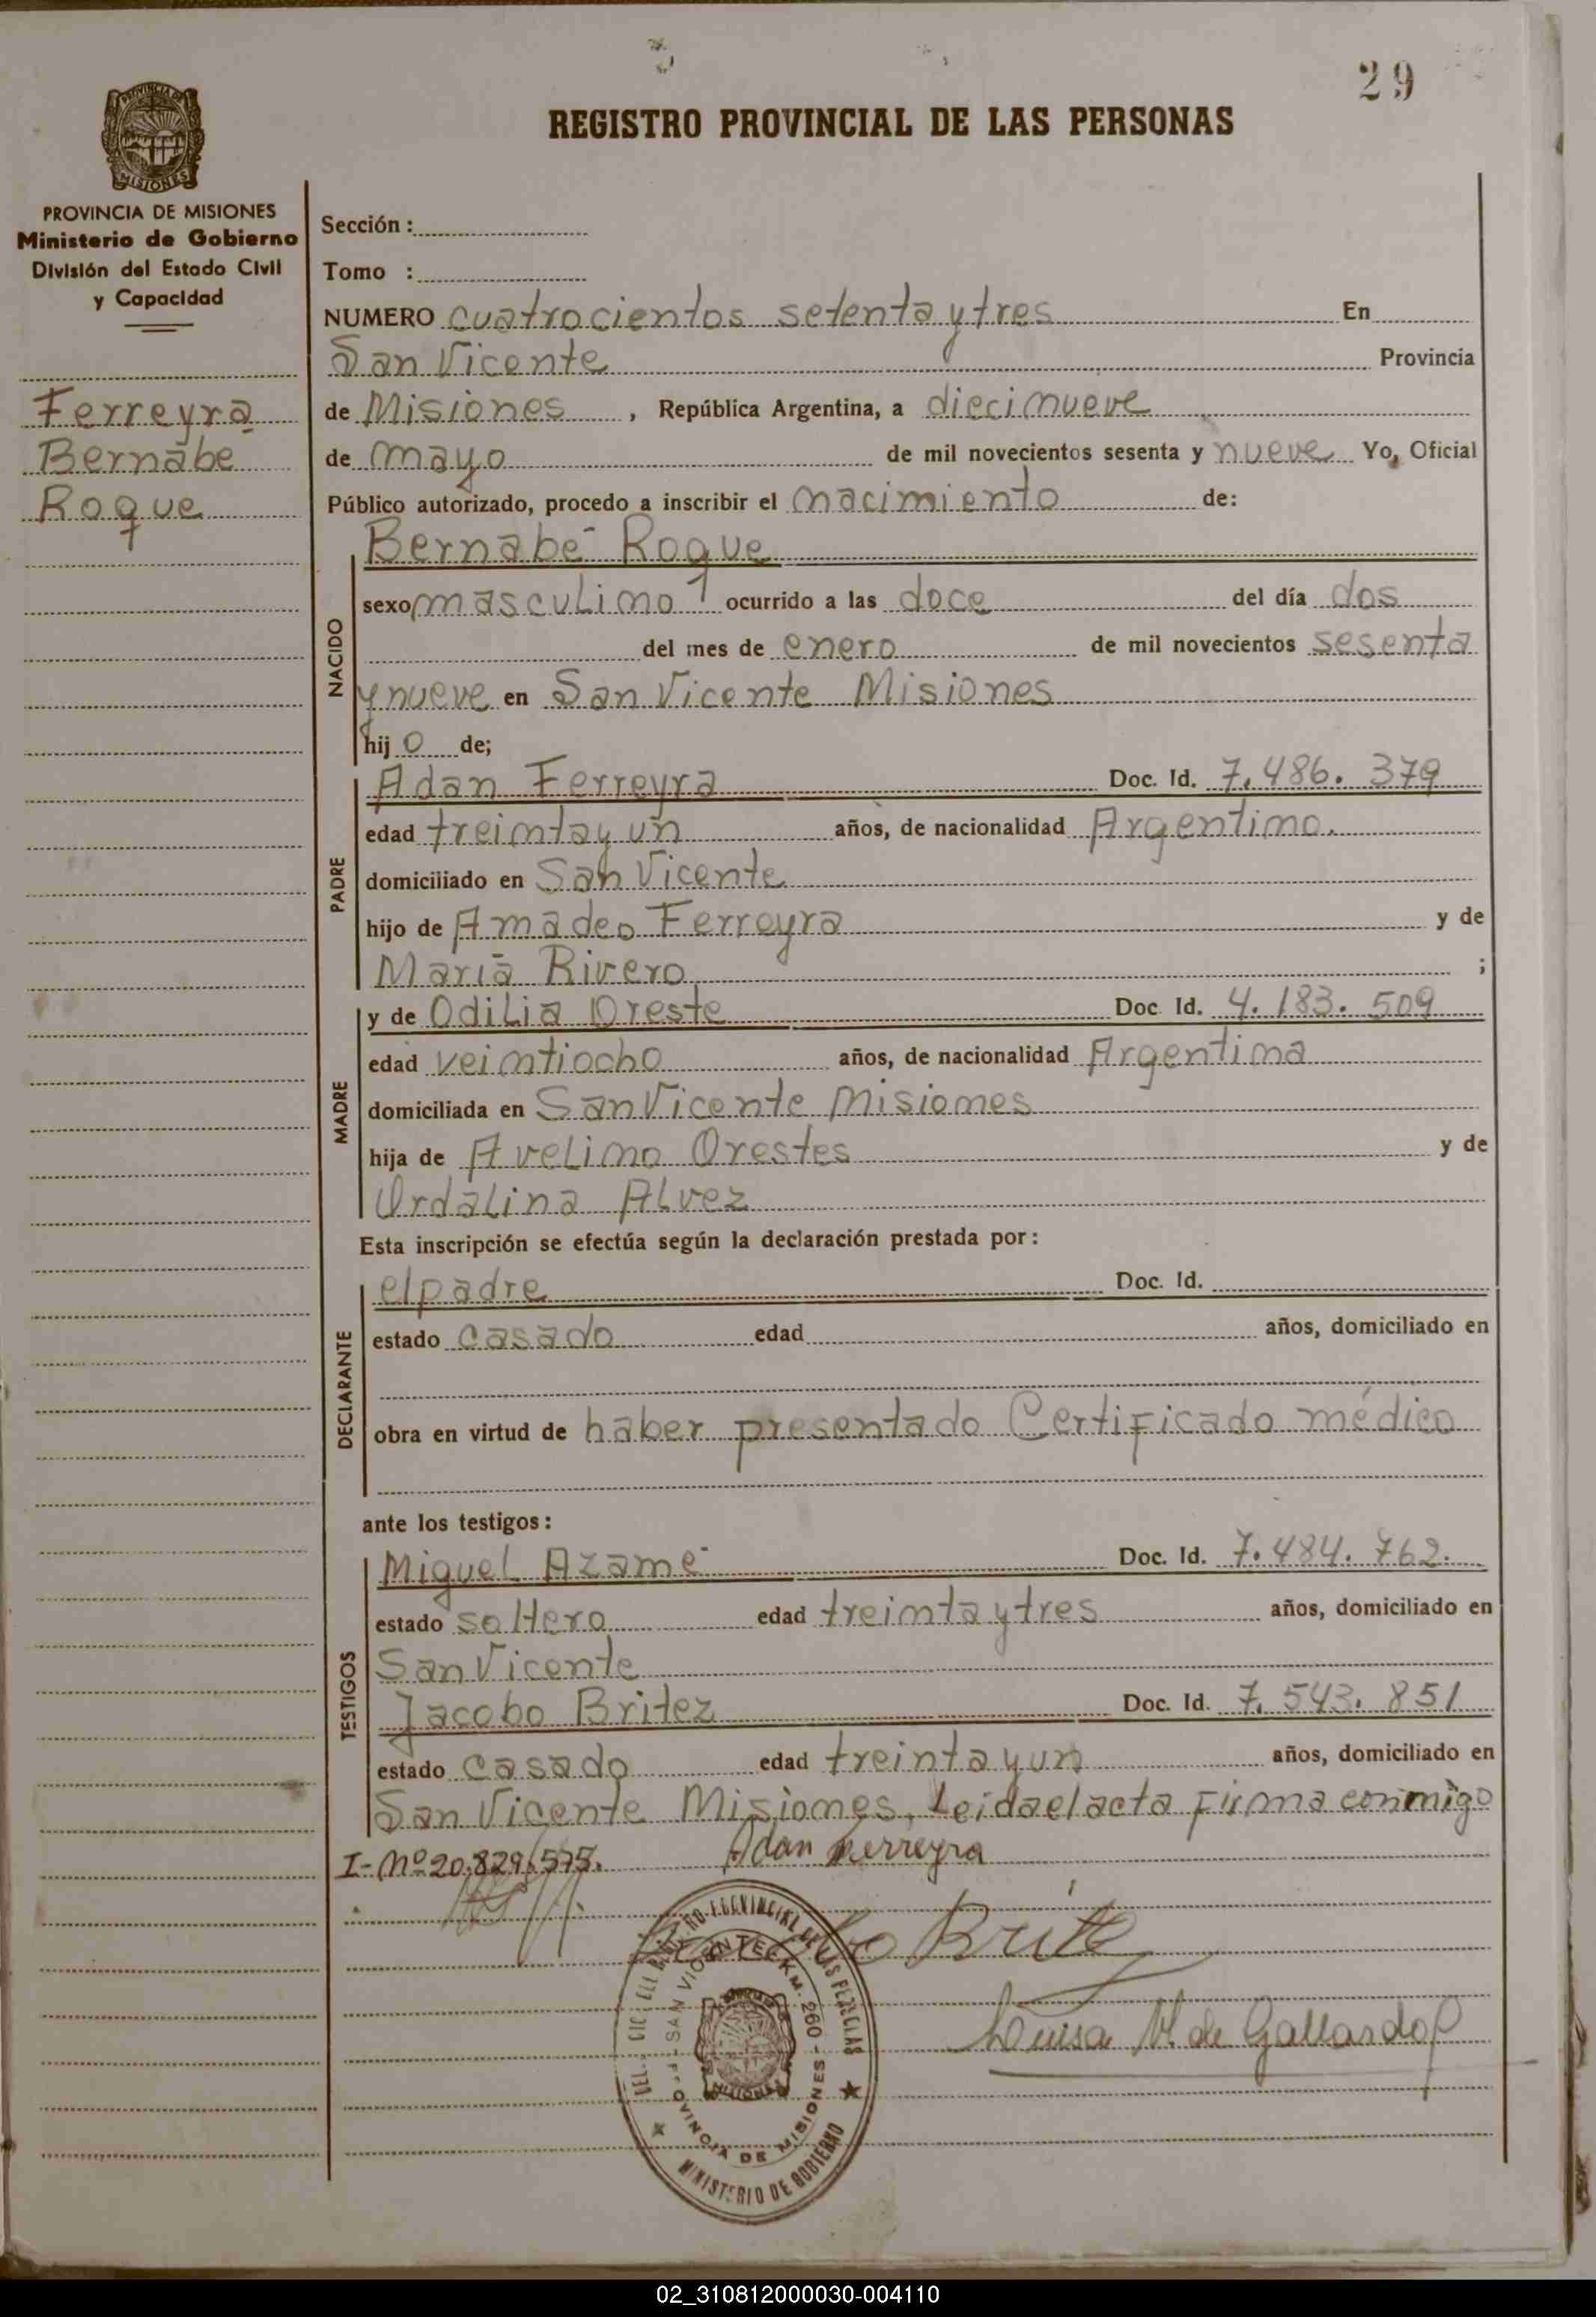 29
REGISTRO PROVINCIAL DE LAS PERSONAS
PROVINCIA DE MISIONES
Ministerio de Gobierno
División del Estado Civil
y Capacidad
Ferreyra
Bernabé
Roque
Sección :
Tomo :
NUMERO cuatrocientos setenta y tres En
San Vicente Provincia
de Misiones , República Argentina, a diecinueve
de mayo de mil novecientos sesenta y nueve Yo, Oficial
Público autorizado, procedo a inscribir el nacimiento de:
NACIDO
Bernabé Roque
sexo masculino ocurrido a las doce del día dos
del mes de enero de mil novecientos sesenta
y nueve en San Vicente Misiones
hij o de;
PADRE
Adan Ferreyra Doc. Id. 7.486.379
edad treinta y un años, de nacionalidad Argentino.
domiciliado en San Vicente
hijo de Amadeo Ferreyra y de
Maria Rivero ;
MADRE
y de Odilia Oreste Doc. Id. 4.183.509
edad veintiocho años, de nacionalidad Argentina
domiciliada en San Vicente Misiones
hija de Avelino Orestes y de
Ordalina Alvez
Esta inscripción se efectúa según la declaración prestada por :
DECLARANTE
el padre Doc. Id.
estado casado edad años, domiciliado en
obra en virtud de haber presentado Certificado médico
ante los testigos :
TESTIGOS
Miguel Azamé Doc. Id. 7.484.762.
estado soltero edad treinta y tres años, domiciliado en
San Vicente
Jacobo Britez Doc. Id. 7.543.851
estado casado edad treinta y un años, domiciliado en
San Vicente Misiones, Leida el acta firma conmigo
I- Nº 20.829.575. Adan Ferreyra
Luisa M. de Gallardo
SAN VICENTE KM. 260 - PROVINCIA DE MISIONES
MINISTERIO DE GOBIERNO
MISIONES
02_310812000030-004110